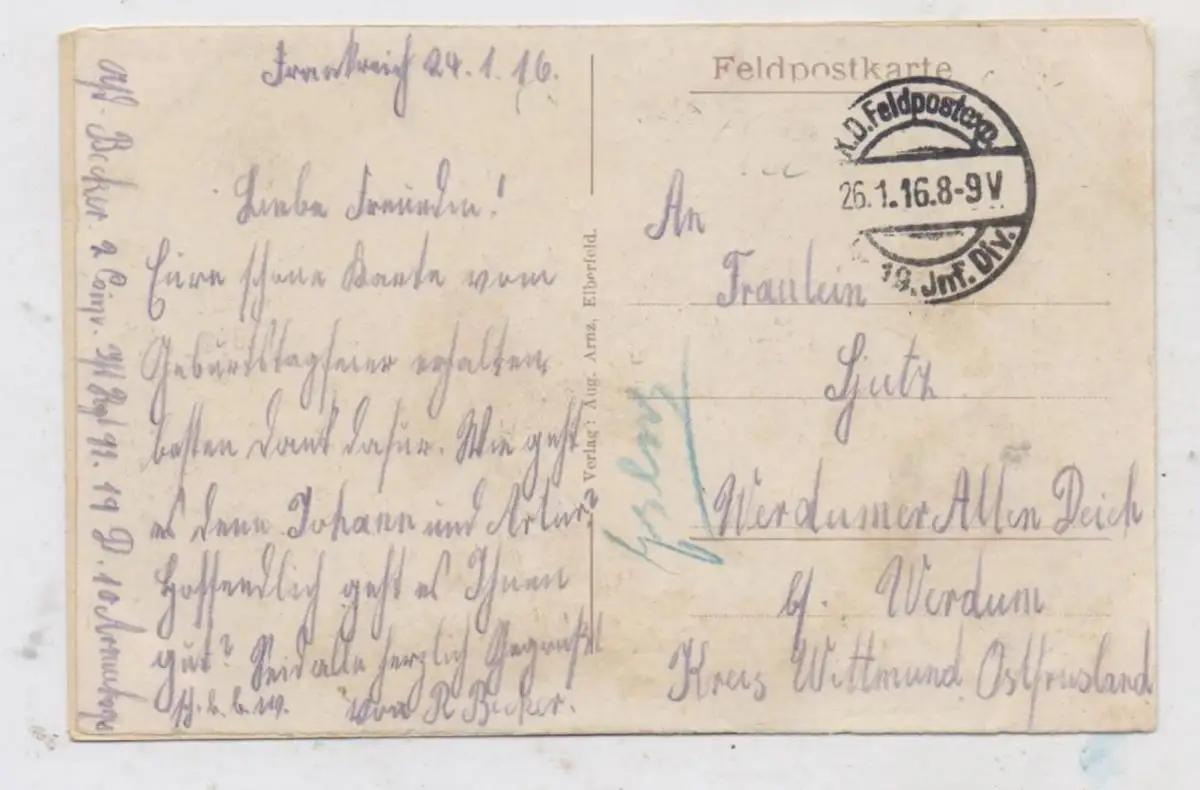 Frankreich 24.1.16.
Liebe Freundin!
Eure schöne Karte vom
Geburtstagsfeier erhalten
besten Dank dafür. Wie geht
es denn Johann und Artur?
Hoffendlich geht es Ihnen
gut? Seid alle herzlich Gegrüßt
sch. b. b. w. von R Becker.
Becker. 2 Comp. Regt 91. 19 D. 10 Armeekorps
Verlag: Aug. Arnz, Elberfeld.
Feldpostkarte
K.D. Feldpostexp.
26.1.16.8-9V
19. Jnf. Div.
An
Fräulein
Werdumer Alten Deich
b/. Werdum
Kreis Wittmund Ostfriesland